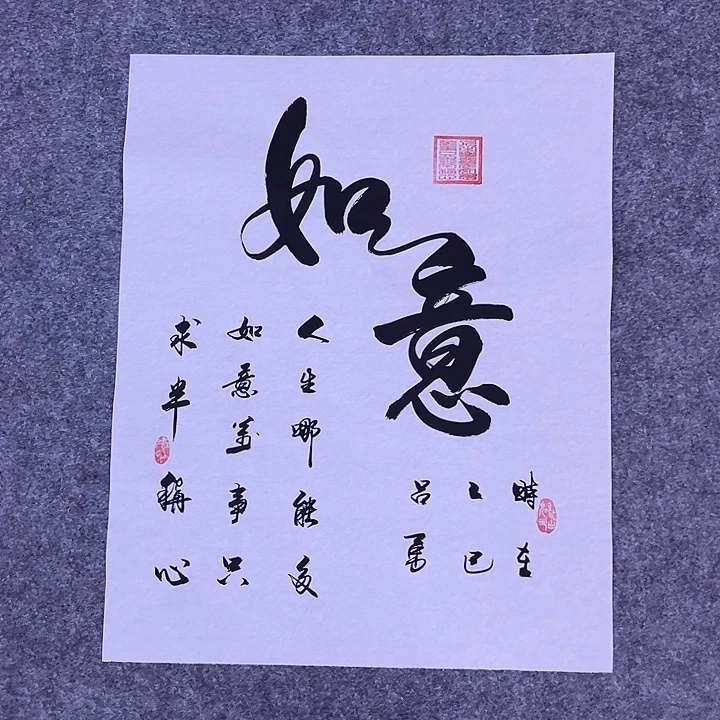 如意
人生哪能多
如意萬事只
求半稱心
時在
乙巳
吕